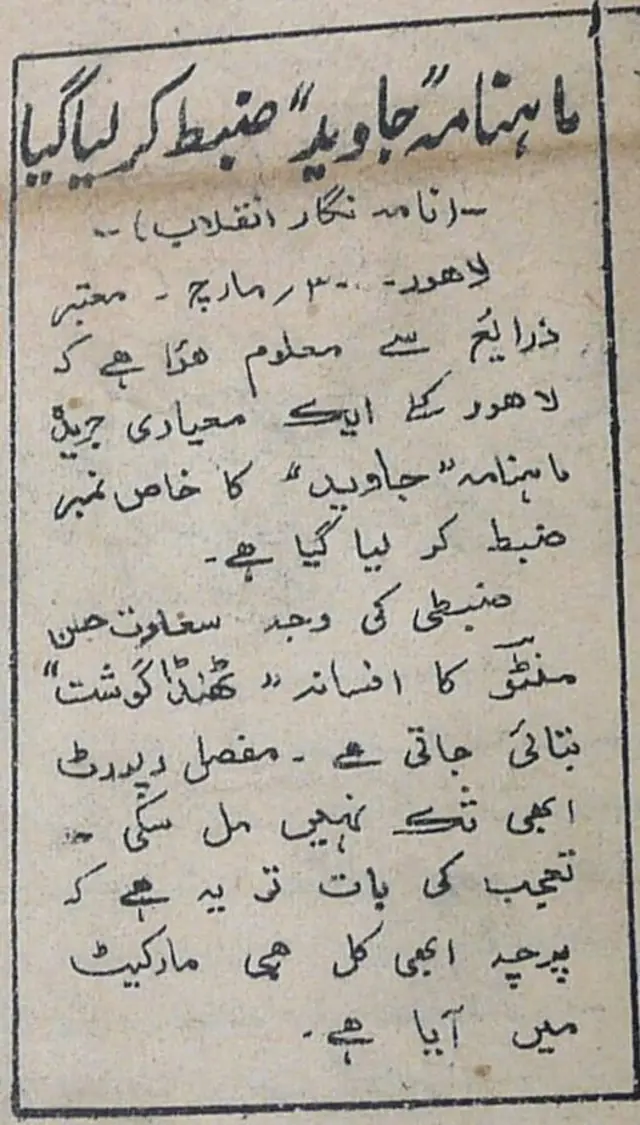 ماہنامہ "جاوید" ضبط کر لیا گیا
--(نامہ نگار انقلاب)--
لاھور۔ ۳۰؍ مارچ ۔ معتبر
ذرایع سے معلوم ھؤا ھے کہ
لاھور کے ایک معیاری جریدہ
ماہنامہ "جاوید" کا خاص نمبر
ضبط کر لیا گیا ھے۔
ضبطی کی وجہ سعادت حسن
منٹو کا افسانہ "ٹھنڈا گوشت"
بتائی جاتی ھے ۔ مفصل رپورٹ
ابھی تک نہیں مل سکی ۔
تعجب کی بات تو یہ ھے کہ
پرچہ ابھی کل ھی مارکیٹ
میں آیا ھے۔